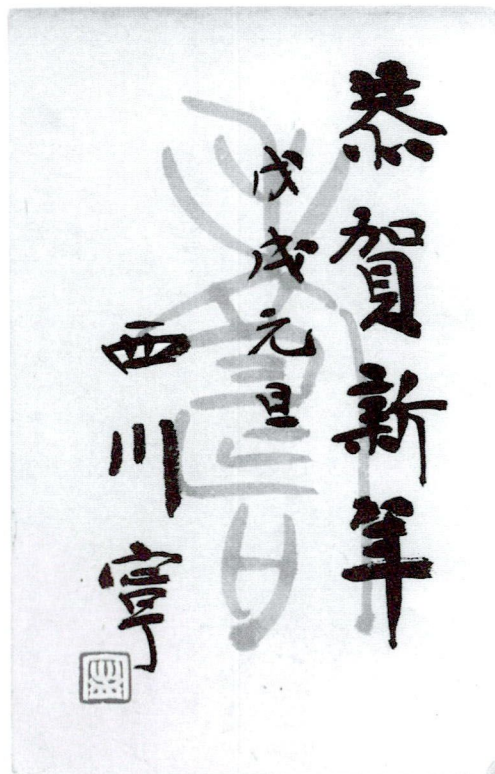 恭賀新年
戊戌元旦
西川寧